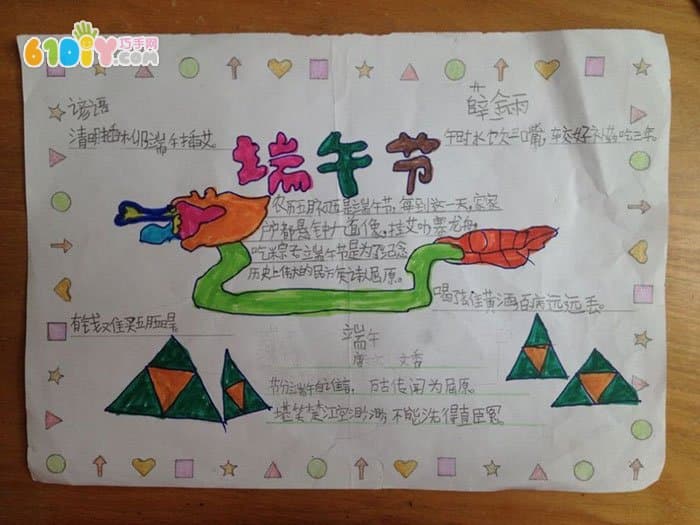 610DIY巧手网
.com
谚语
薛金雨
清明插柳端午插艾。
午时水饮三口嘴,较好补药吃三年
端午节
农历五月初五是端午节,每到这一天,家家
户都悬钟馗像,挂艾叶赛龙舟,
吃粽去端午节是为了纪念
历史上伟大的民 诗 屈原。
喝 雄黄酒百病远远丢。
有钱难买五月旱
端午
唐 文秀
节分端午自 言, 万古传闻为屈原
堪笑楚江空渺渺 不能洗得直臣冤